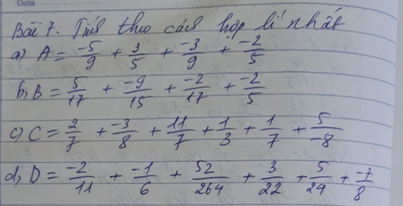 Bài 7. Tính theo cách hợp lí nhất
a) A = -5/9 + 3/5 + -3/9 + -2/5
b) B = 5/17 + -9/15 + -2/17 + -2/5
c) C = 2/7 + -3/8 + 11/7 + 1/3 + 1/7 + 5/-8
d) D = -2/11 + -1/6 + 52/264 + 3/22 + 5/24 + -7/8